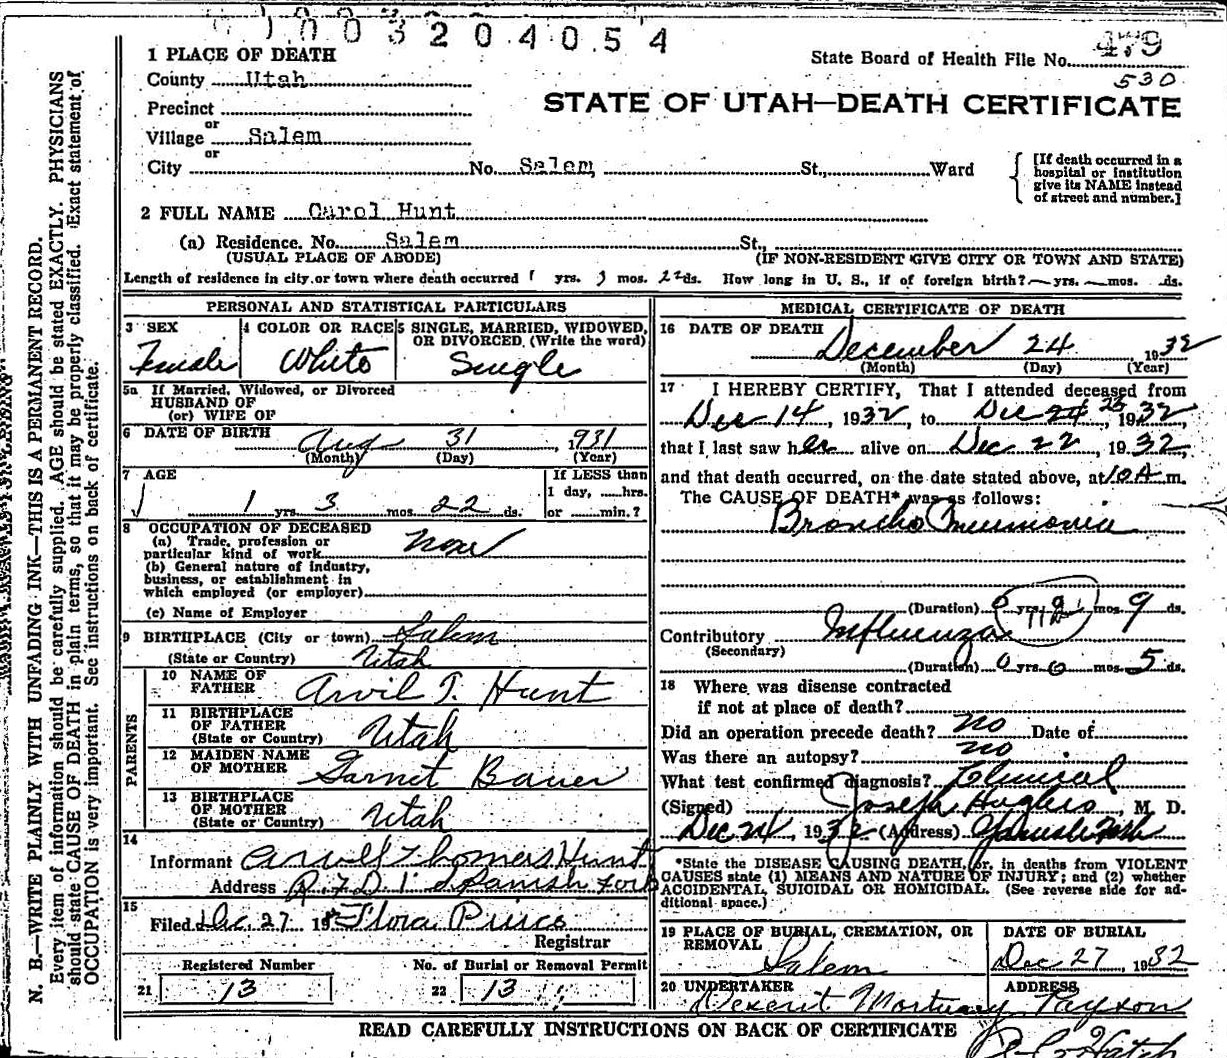 1003204054
1 PLACE OF DEATH
State Board of Health File No. 479
County Utah
530
STATE OF UTAH—DEATH CERTIFICATE
Precinct
or
Village Salem
or
City No. Salem St., Ward
[If death occurred in a
hospital or institution
give its NAME instead
of street and number.]
2 FULL NAME Carol Hunt
(a) Residence. No. Salem St.,
(USUAL PLACE OF ABODE) (IF NON-RESIDENT GIVE CITY OR TOWN AND STATE)
Length of residence in city or town where death occurred 1 yrs. 3 mos. 22 ds. How long in U. S., if of foreign birth? — yrs. — mos. ds.
PERSONAL AND STATISTICAL PARTICULARS
3 SEX
Female
4 COLOR OR RACE
White
5 SINGLE, MARRIED, WIDOWED,
OR DIVORCED. (Write the word)
Single
5a If Married, Widowed, or Divorced
HUSBAND OF
(or) WIFE OF
6 DATE OF BIRTH Aug 31 1931
(Month) (Day) (Year)
7 AGE
1 yrs. 3 mos. 22 ds.
If LESS than
1 day, hrs.
or min.?
8 OCCUPATION OF DECEASED
(a) Trade, profession or
particular kind of work None
(b) General nature of industry,
business, or establishment in
which employed (or employer)
(c) Name of Employer
9 BIRTHPLACE (City or town) Salem
(State or Country) Utah
PARENTS
10 NAME OF
FATHER Arvil T. Hunt
11 BIRTHPLACE
OF FATHER
(State or Country) Utah
12 MAIDEN NAME
OF MOTHER Garnet Bauer
13 BIRTHPLACE
OF MOTHER
(State or Country) Utah
14
Informant Arvil Thomas Hunt
Address R.F.D. 1 Spanish Fork
15
Filed Dec. 27 19 Flora
Registrar
Registered Number No. of Burial or Removal Permit
21 13 22 13
MEDICAL CERTIFICATE OF DEATH
16 DATE OF DEATH
December 24 1932
(Month) (Day) (Year)
17 I HEREBY CERTIFY, That I attended deceased from
Dec 14, 1932, to Dec 24 23, 1932,
that I last saw her alive on Dec 22, 1932,
and that death occurred, on the date stated above, at 10 A m.
The CAUSE OF DEATH* was as follows:
Broncho Pneumonia
(Duration) 0 yrs. mos. 9 ds.
Contributory Influenza
(Secondary)
(Duration) 0 yrs. 0 mos. 5 ds.
18 Where was disease contracted
if not at place of death?
Did an operation precede death? no Date of
Was there an autopsy? no
What test confirmed diagnosis? Clinical
(Signed) Joseph Hughes, M. D.
Dec 24, 1932 (Address) Spanish Fork
*State the DISEASE CAUSING DEATH, or, in deaths from VIOLENT
CAUSES state (1) MEANS AND NATURE OF INJURY; and (2) whether
ACCIDENTAL, SUICIDAL OR HOMICIDAL. (See reverse side for ad-
ditional space.)
19 PLACE OF BURIAL, CREMATION, OR
REMOVAL
Salem
DATE OF BURIAL
Dec 27, 1932
20 UNDERTAKER
Deseret Mortuary
ADDRESS
Payson
READ CAREFULLY INSTRUCTIONS ON BACK OF CERTIFICATE
N. B.—WRITE PLAINLY WITH UNFADING INK—THIS IS A PERMANENT RECORD.
Every item of information should be carefully supplied. AGE should be stated EXACTLY. PHYSICIANS
should state CAUSE OF DEATH in plain terms, so that it may be properly classified. Exact statement of
OCCUPATION is very important. See instructions on back of certificate.